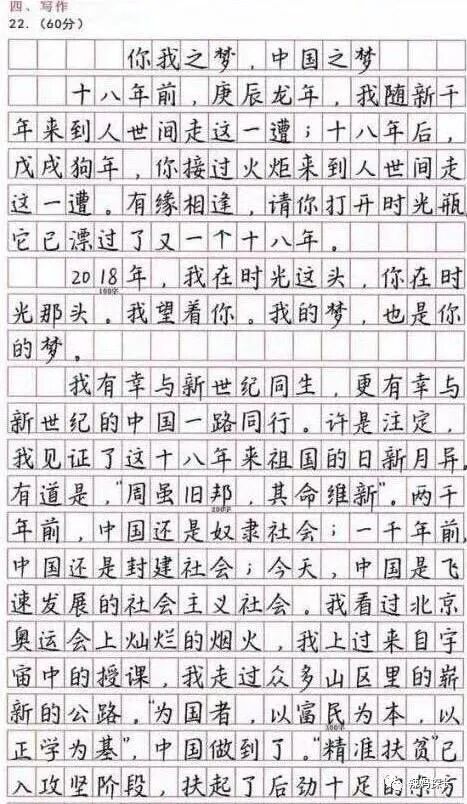 四、写作
22.（60分）
你我之梦，中国之梦
十八年前，庚辰龙年，我随新千
年来到人世间走这一遭；十八年后，
戊戌狗年，你接过火炬来到人世间走
这一遭。有缘相逢，请你打开时光瓶
它已漂过了又一个十八年。
2018年，我在时光这头，你在时
100字
光那头。我望着你。我的梦，也是你
的梦。
我有幸与新世纪同生，更有幸与
新世纪的中国一路同行。许是注定，
我见证了这十八年来祖国的日新月异。
有道是，“周虽旧邦，其命维新”。两千
200字
年前，中国还是奴隶社会；一千年前，
中国还是封建社会；今天，中国是飞
速发展的社会主义社会。我看过北京
奥运会上灿烂的烟火，我上过来自宇
宙中的授课，我走过众多山区里的崭
新的公路。“为国者，以富民为本，以
300字
正学为基”，中国做到了。“精准扶贫”已
入攻坚阶段，扶起了后劲十足的方